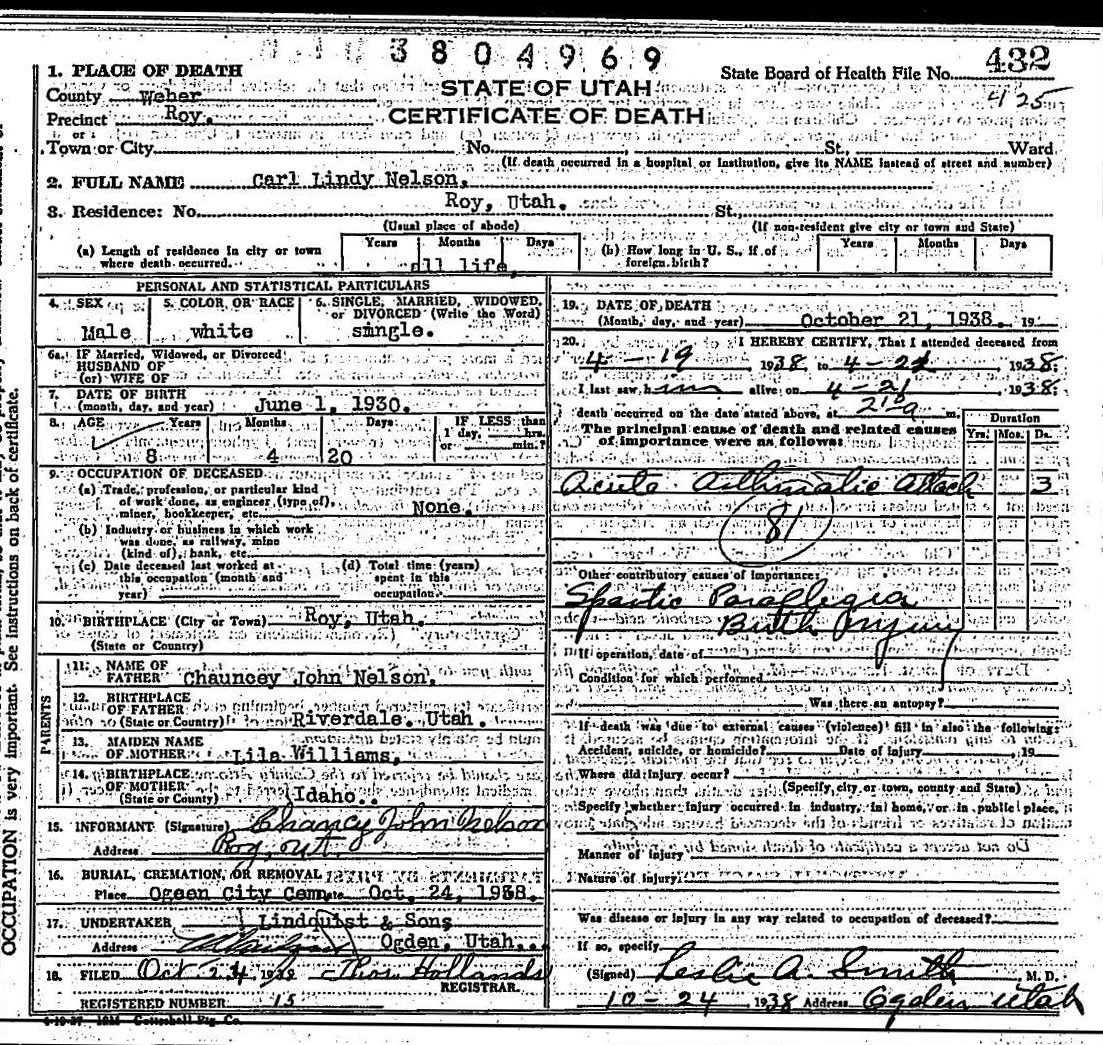 3804969
432
State Board of Health File No.
425
1. PLACE OF DEATH
STATE OF UTAH
County Weber
CERTIFICATE OF DEATH
Precinct Roy.
or
Town or City No. , St., Ward
(If death occurred in a hospital or institution, give its NAME instead of street and number)
2. FULL NAME Carl Lindy Nelson,
3. Residence: No. Roy, Utah. St.,
(Usual place of abode) (If non-resident give city or town and State)
(a) Length of residence in city or town where death occurred. Years Months Days
all life,
(b) How long in U. S., if of foreign birth? Years Months Days
PERSONAL AND STATISTICAL PARTICULARS
4. SEX Male
5. COLOR OR RACE white
6. SINGLE, MARRIED, WIDOWED, or DIVORCED (Write the Word)
single.
6a. IF Married, Widowed, or Divorced
HUSBAND OF
(or) WIFE OF
7. DATE OF BIRTH
(month, day, and year) June 1, 1930.
8. AGE Years Months Days IF LESS than
1 day, hrs.
or min.?
8 4 20
9. OCCUPATION OF DECEASED
(a) Trade, profession, or particular kind
of work done, as engineer (type of),
miner, bookkeeper, etc. None.
(b) Industry or business in which work
was done, as railway, mine
(kind of), bank, etc.
(c) Date deceased last worked at
this occupation (month and
year)
(d) Total time (years)
spent in this
occupation
10. BIRTHPLACE (City or Town) Roy, Utah.
(State or Country)
PARENTS
11. NAME OF
FATHER Chauncey John Nelson,
12. BIRTHPLACE
OF FATHER
(State or County) Riverdale, Utah.
13. MAIDEN NAME
OF MOTHER Lila Williams,
14. BIRTHPLACE
OF MOTHER
(State or County) Idaho..
15. INFORMANT (Signature) Chancy John Nelson
Address Roy, Ut.
16. BURIAL, CREMATION, OR REMOVAL
Place Ogeen City Cem Date Oct. 24, 1938.
17. UNDERTAKER Lindquist & Sons
Address Ogden, Utah..
18. FILED Oct 24, 19 Thos Hollands
REGISTRAR.
REGISTERED NUMBER 15
19. DATE OF DEATH
(Month, day, and year) October 21, 1938. 19
20. I HEREBY CERTIFY, That I attended deceased from
4-19 1938, to 4-21, 1938.
I last saw him alive on 4-21 1938.
death occurred on the date stated above, at m.
The principal cause of death and related causes
of importance were as follows:
Duration
Yrs. Mos. Ds.
Acute Asthmatic Attack 3
81
Other contributory causes of importance:
Spastic Paraplegia
Birth Injury
If operation, date of
Condition for which performed
Was there an autopsy?
If death was due to external causes (violence) fill in also the following:
Accident, suicide, or homicide? Date of injury 19
Where did injury occur?
(Specify city or town, county and State)
Specify whether injury occurred in industry, in home, or in public place.
Manner of injury
Nature of injury
Was disease or injury in any way related to occupation of deceased?
If so, specify
(Signed) Leslie A. Smith M. D.
10-24 1938 Address Ogden Utah
OCCUPATION is very important. See instructions on back of certificate.